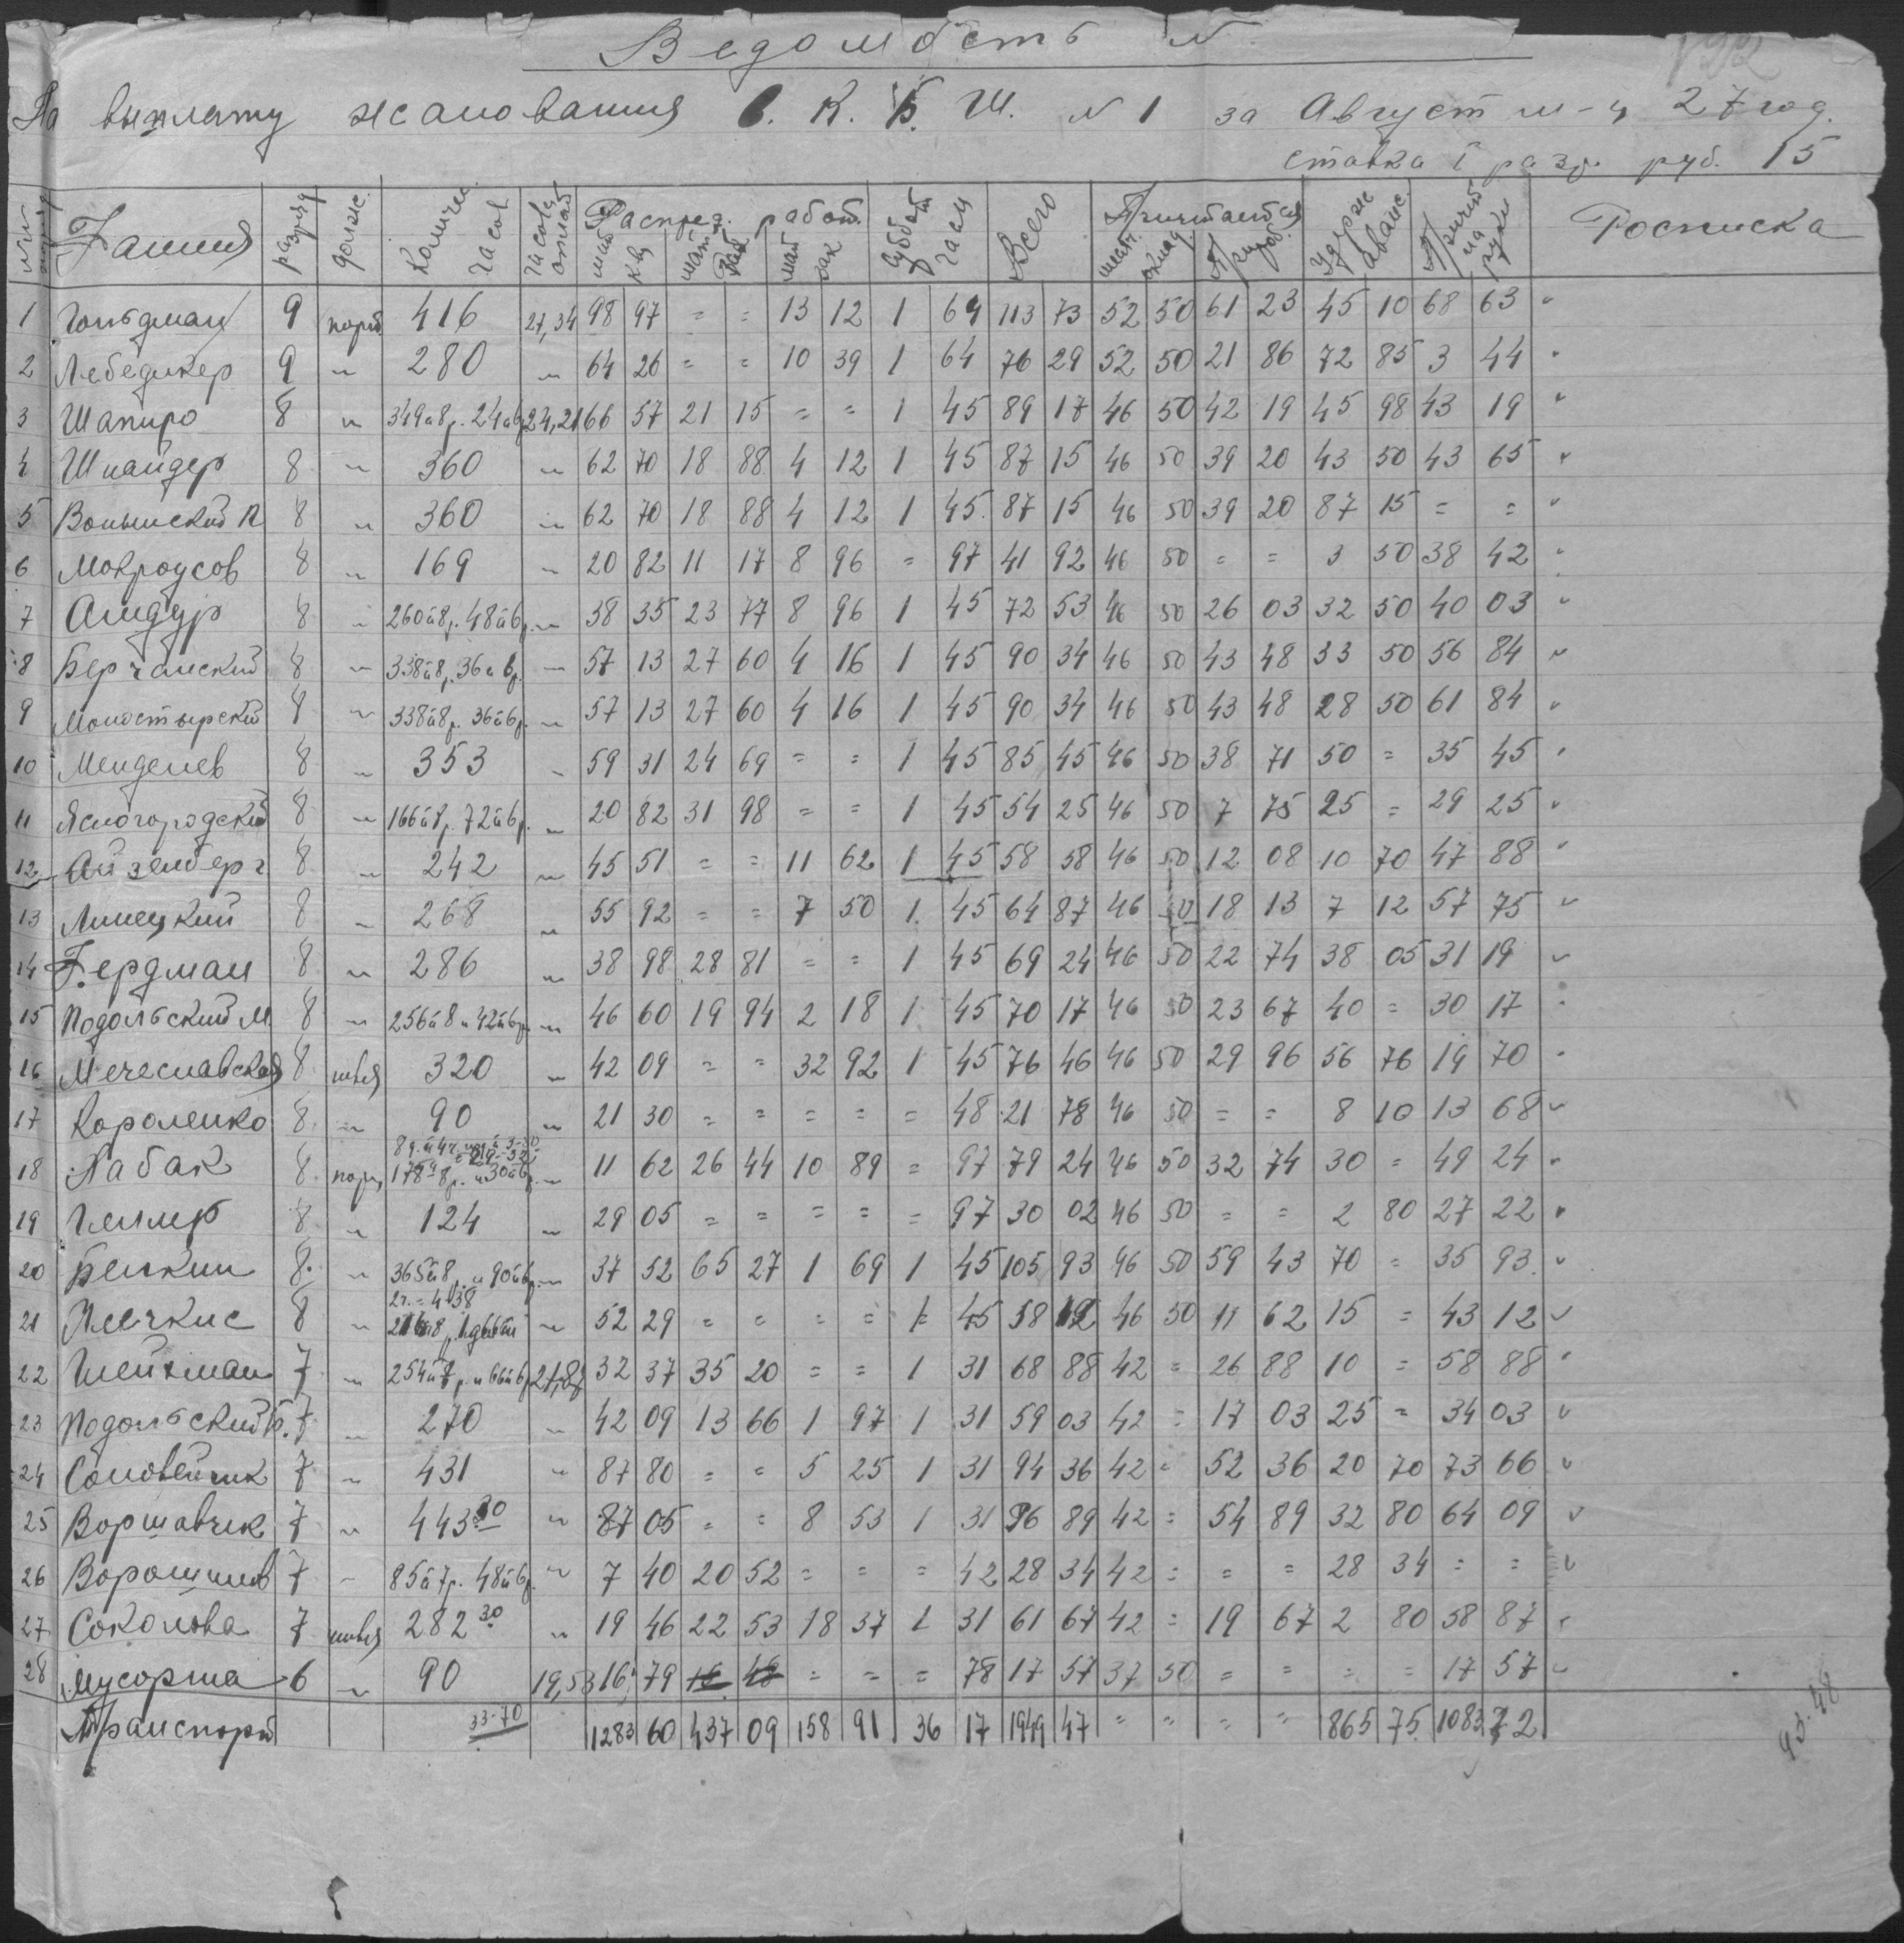 Ведомость N
На выплату жалования В. К. Б. Ш. N 1 за Август м-ц 27 год.
ставка I разр. руб. 15
Фамилия разряд долж. Количес. часов Распред. работ. Суббот. часы Всего Причитается Удерж аванс. Причит на руки Росписка
1 Гольдман 9 порт 416 27,34 98 97 = = 13 12 1 64 113 73 52 50 61 23 45 10 68 63
2 Лебедикер 9 " 280 " 64 26 = = 10 39 1 64 76 29 52 50 21 86 72 85 3 44
3 Шапиро 8 " 349 а 8 р. 24 а 6 р 24,21 66 57 21 15 = = 1 45 89 17 46 50 42 19 45 98 43 19
4 Шнайдер 8 " 360 " 62 70 18 88 4 12 1 45 87 15 46 50 39 20 43 50 43 65
5 Волынский П 8 " 360 " 62 70 18 88 4 12 1 45 87 15 46 50 39 20 87 15 = =
6 Мокроусов 8 " 169 " 20 82 11 17 8 96 = 97 41 92 46 50 = = 3 50 38 42
7 Амдур 8 " 260 а 8 р. 48 а 6 р. " 38 35 23 77 8 96 1 45 72 53 46 50 26 03 32 50 40 03
8 Берчанский 8 " 338 а 8 р. 36 а 6 р. " 57 13 27 60 4 16 1 45 90 34 46 50 43 48 33 50 56 84
9 Моностырский 8 " 338 а 8 р. 36 а 6 р. " 57 13 27 60 4 16 1 45 90 34 46 50 43 48 28 50 61 84
10 Менделев 8 " 353 " 59 31 24 69 = = 1 45 85 45 46 50 38 71 50 = 35 45
11 Ясногородский 8 " 166 а 8 р. 72 а 6 р. " 20 82 31 98 = = 1 45 54 25 46 50 7 75 25 = 29 25
12 Айзенберг 8 " 242 " 45 51 = = 11 62 1 45 58 58 46 50 12 08 10 70 47 88
13 Линецкий 8 " 268 " 55 92 = = 7 50 1 45 64 87 46 50 18 13 7 12 57 75
14 Гердман 8 " 286 " 38 98 28 81 = = 1 45 69 24 46 50 22 74 38 05 31 19
15 Подольский М. 8 " 256 а 8 и 42 а 6 р. " 46 60 19 94 2 18 1 45 70 17 46 50 23 67 40 = 30 17
16 Мечеславская 8 швея 320 " 42 09 = = 32 92 1 45 76 46 46 50 29 96 56 76 19 70
17 Короленко 8 " 90 " 21 30 = = = = = 48 21 78 46 50 = = 8 10 13 68
18 Лабак 8 порт 178 а 8 р. и 30 а 6 р. " 11 62 26 44 10 89 = 97 79 24 46 50 32 74 30 = 49 24
19 Геллер 8 " 124 " 29 05 = = = = = 97 30 02 46 50 = = 2 80 27 22
20 Белкин 8 " 365 а 8 р. и 90 а 6 р. " 37 52 65 27 1 69 1 45 105 93 46 50 59 43 70 = 35 93
21 8 " 2 ч. = 4-38 " 52 29 = = = = 45 58 12 46 50 11 62 15 = 43 12
22 Шейхман 7 " 254 а 7 р. и 66 а 6 р 21,87 32 37 35 20 = = 1 31 68 88 42 = 26 88 10 = 58 88
23 Подольский Б. 7 " 270 " 42 09 13 66 1 97 1 31 59 03 42 = 17 03 25 = 34 03
24 Соловейчик 7 " 431 " 87 80 = = 5 25 1 31 94 36 42 = 52 36 20 70 73 66
25 Воршавчик 7 " 443 30 " 87 05 = = 8 53 1 31 96 89 42 = 54 89 32 80 64 09
26 Ворошилов 7 " 85 а 7 р. 48 а 6 р. " 7 40 20 52 = = = 42 28 34 42 = = = 28 34 = =
27 Соколова 7 швея 282 30 " 19 46 22 53 18 37 1 31 61 67 42 = 19 67 2 80 58 87
28 Мусорина 6 " 90 19,53 16 79 = = = 78 17 57 37 50 = = = = 17 57
Транспорт 33-70 1283 60 437 09 158 91 36 17 1949 47 = = = = 865 75 1083 72
93-48